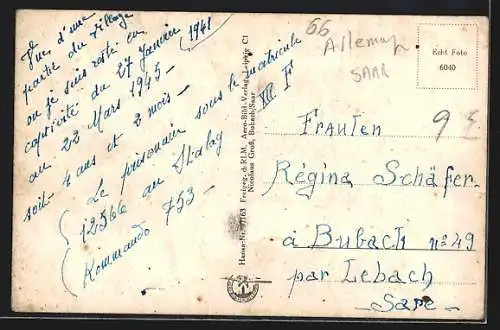 Vue d'une
partie du village
ou je suis resté en
captivité du 27 Janvier 1941
au 22 Mars 1945 -
soit - 4 ans et 2 mois -
Le prisonnier sous le matricule
12566 au Stalag XII F
Kommando 753 -
Hansa-Nr. 97163 Freigeg. d. RLM. Aero-Bild-Verlag, Leipzig C1
Nicolaus Groß, Bubach/Saar
66
Allemag
SAAR
Echt Foto
6040
9 €
Fraulen
Régina Schäfer
à Bubach n° 49
par Lebach
- Sare -